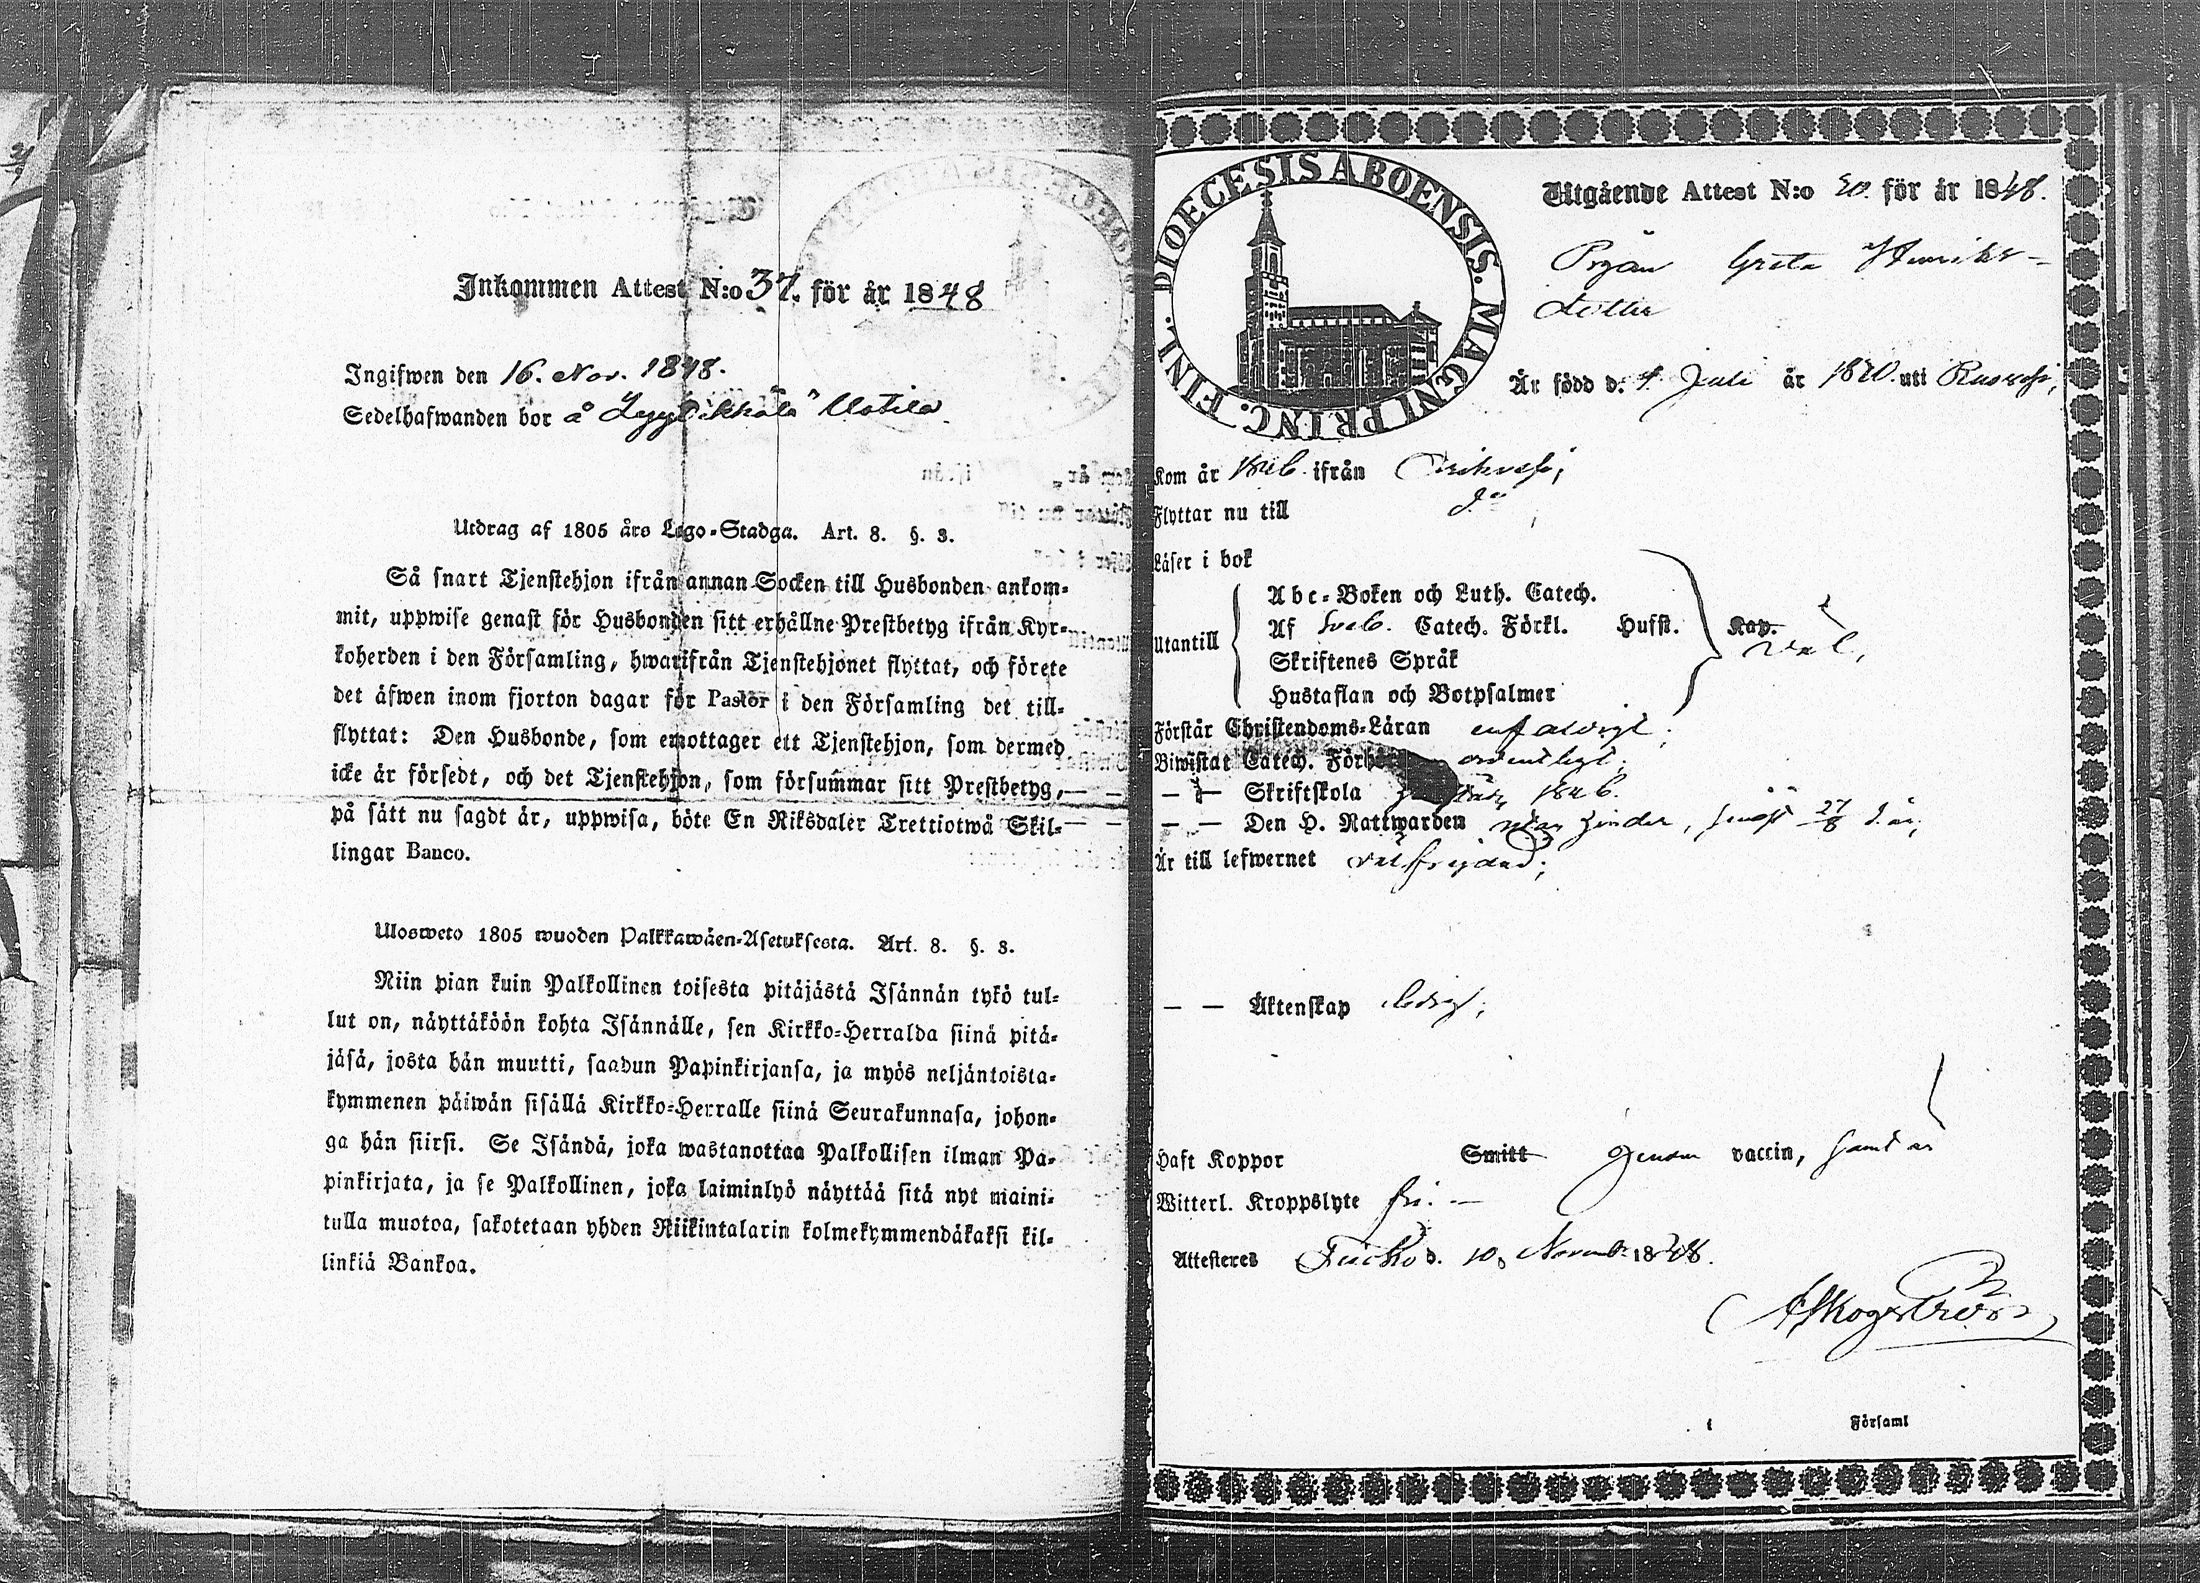 Inkommen Attest N:o 37. för år 1848
Ingifwen den 16. Nov. 1848.
Sedelhafwanden bor å
Utdrag af 1805 års Lego-Stadga. Art. 8. §. 3.
Så snart Tjenstehjon ifrån annan Socken till Husbonden ankom-
mit, uppwise genast för Husbonden sitt erhållne Prestbetyg ifrån Kyr-
koherden i den Församling, hwarifrån Tjenstehjonet flyttat, och förete
det äfwen inom fjorton dagar för Pastor i den Församling det till-
flyttat: Den Husbonde, som emottager ett Tjenstehjon, som dermed
icke är försedt, och det Tjenstehjon, som försummar sitt Prestbetyg,
på sätt nu sagdt är, uppwisa, böte En Riksdaler Trettiotwå Skil-
lingar Banco.
Ulosweto 1805 wuoden Palkkawäen-Asetuksesta. Art. 8. §. 3.
Niin pian kuin Palkollinen toisesta pitäjästä Isännän tykö tul-
lut on, näyttäköön kohta Isännälle, sen Kirkko-Herralda siinä pitä-
jäsä, josta hän muutti, saadun Papinkirjansa, ja myös neljäntoista-
kymmenen päiwän sisällä Kirkko-Herralle siinä Seurakunnasa, johon-
ga hän siirsi. Se Isändä, joka wastanottaa Palkollisen ilman Pa-
pinkirjata, ja se Palkollinen, joka laiminlyö näyttää sitä nyt maini-
tulla muotoa, sakotetaan yhden Riikintalarin kolmekymmendäkaksi kil-
linkiä Bankoa.
DIOECESIS ABOENSIS. MAGNI PRINC. FINL.
Utgående Attest N:o 20. för år 1848.
Pigan Greta Henriks-
dotter
Är född d. 4 Juli år 1820. uti
Kom år 1846. ifrån
Flyttar nu till do
Läser i bok
Utantill
Abc-Boken och Luth. Catech.
Af Sveb. Catech. Förkl. Husst. Kap.
Skriftenes Språk
Hustaflan och Botpsalmer
väl,
Förstår Christendoms-Läran enfaldigt;
Biwistat Catech. Förhör ordentligt;
— — Skriftskola 1846.
— — Den H. Nattwarden utan hinder, senast 27/8 d. år,
Är till lefwernet välfrejdad;
— — Äktenskap ledig;
Haft Koppor Smitt genom vaccin, samt är
Witterl. Kroppslyte fri. —
Attesteres d. 10. Novemb. 1848.
i Församl